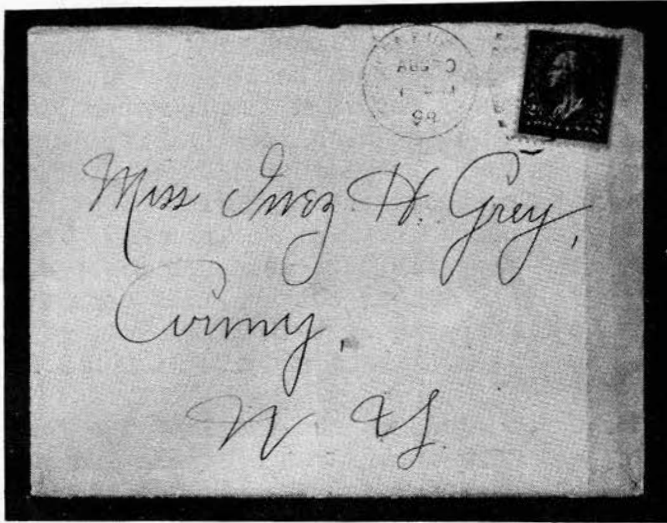 AUG
98
Miss Inez H. Grey,
Corning,
N. Y.